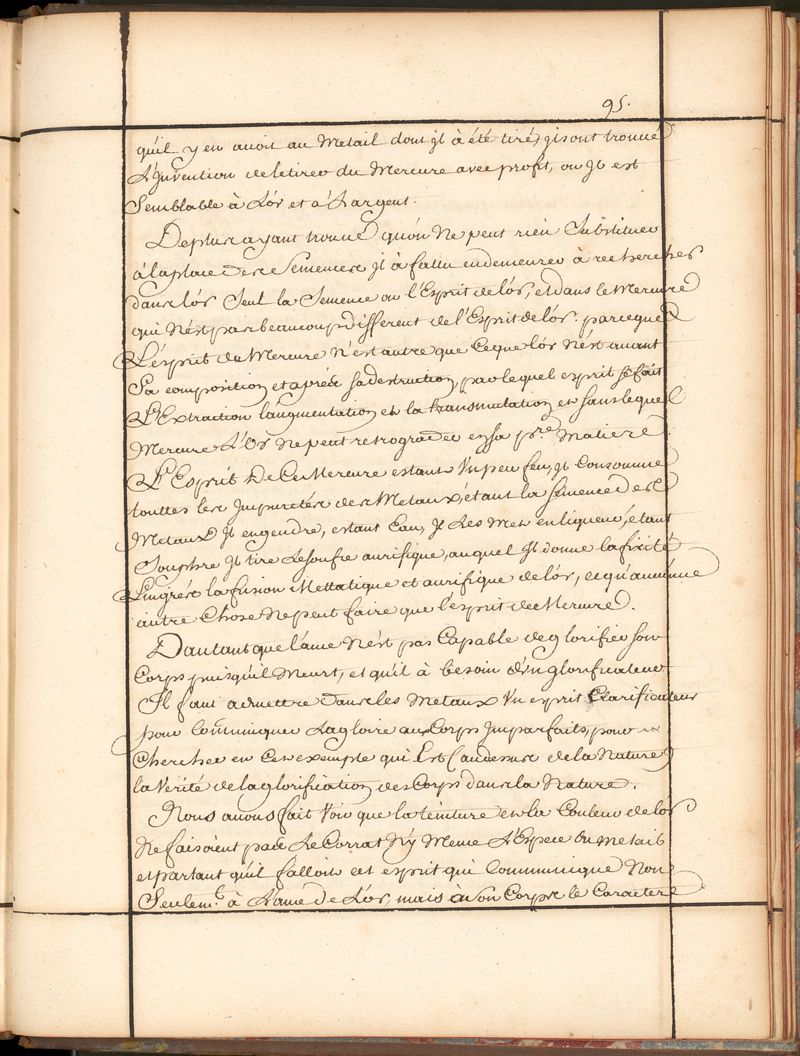 95.
qu'il y en avoit au Metail dont jl à été tiré, jls ont trouvé
L'jnvention de le tirer du Mercure avec profit, ou Jl est
Semblable à L'or et à L'argent.
De plus ayant trouvé qu'on Ne peut rien Substituer
à la place des Semences jl à fallu en demeurer à rechercher
dans l'or Seul la Semence ou l'Esprit de l'or, et dans le Mercure
qui N'est pas beaucoup different de l'Esprit de l'or. parceque
L'esprit du Mercure N'est autre que Ce que l'or N'est avant
Sa composition et après sa destruction, par lequel esprit se fait
L'Extraction l'augmentation et la transmutation et sans lequel
Mercure L'Or Ne peut retrograder en sa pre. Matiere.
L'Esprit De Ce Mercure estant Un peu feu, jl Consomme
touttes les Jmpuretés des Metaux, étant la semence des
Metaux jl engendre, estant Eau, jl Les Met en liqueur, étant
Souphre jl tire Le soufre aurifique, auquel Jl donne la fixité
L'ingrés la fusion Mettatique et aurifique de l'or, ce qu'aucune
autre Chose Ne peut faire que l'esprit de Mercure.
D'autant que l'ame N'est pas Capable de glorifier son
Corps puisqu'il Meurt, et qu'il à besoin d'un glorificateur
Il faut admettre dans les Metaux Un esprit Clarificateur
pour Com̄uniquer La gloire aux Corps Jmparfaits, pour
Chercher en Ces exemple qui Est au dessus de la Nature
la Verité de la glorification des Corps dans la Nature.
Nous avons fait Voir que la teinture et la Couleur de l'or
Ne faisoient pas Le Corrat N'y Meme L'Espece du Metail
et partant qu'il falloit cet esprit qui Communique Non
Seulemt. à L'ame de L'or, mais à son Corps le Caractere